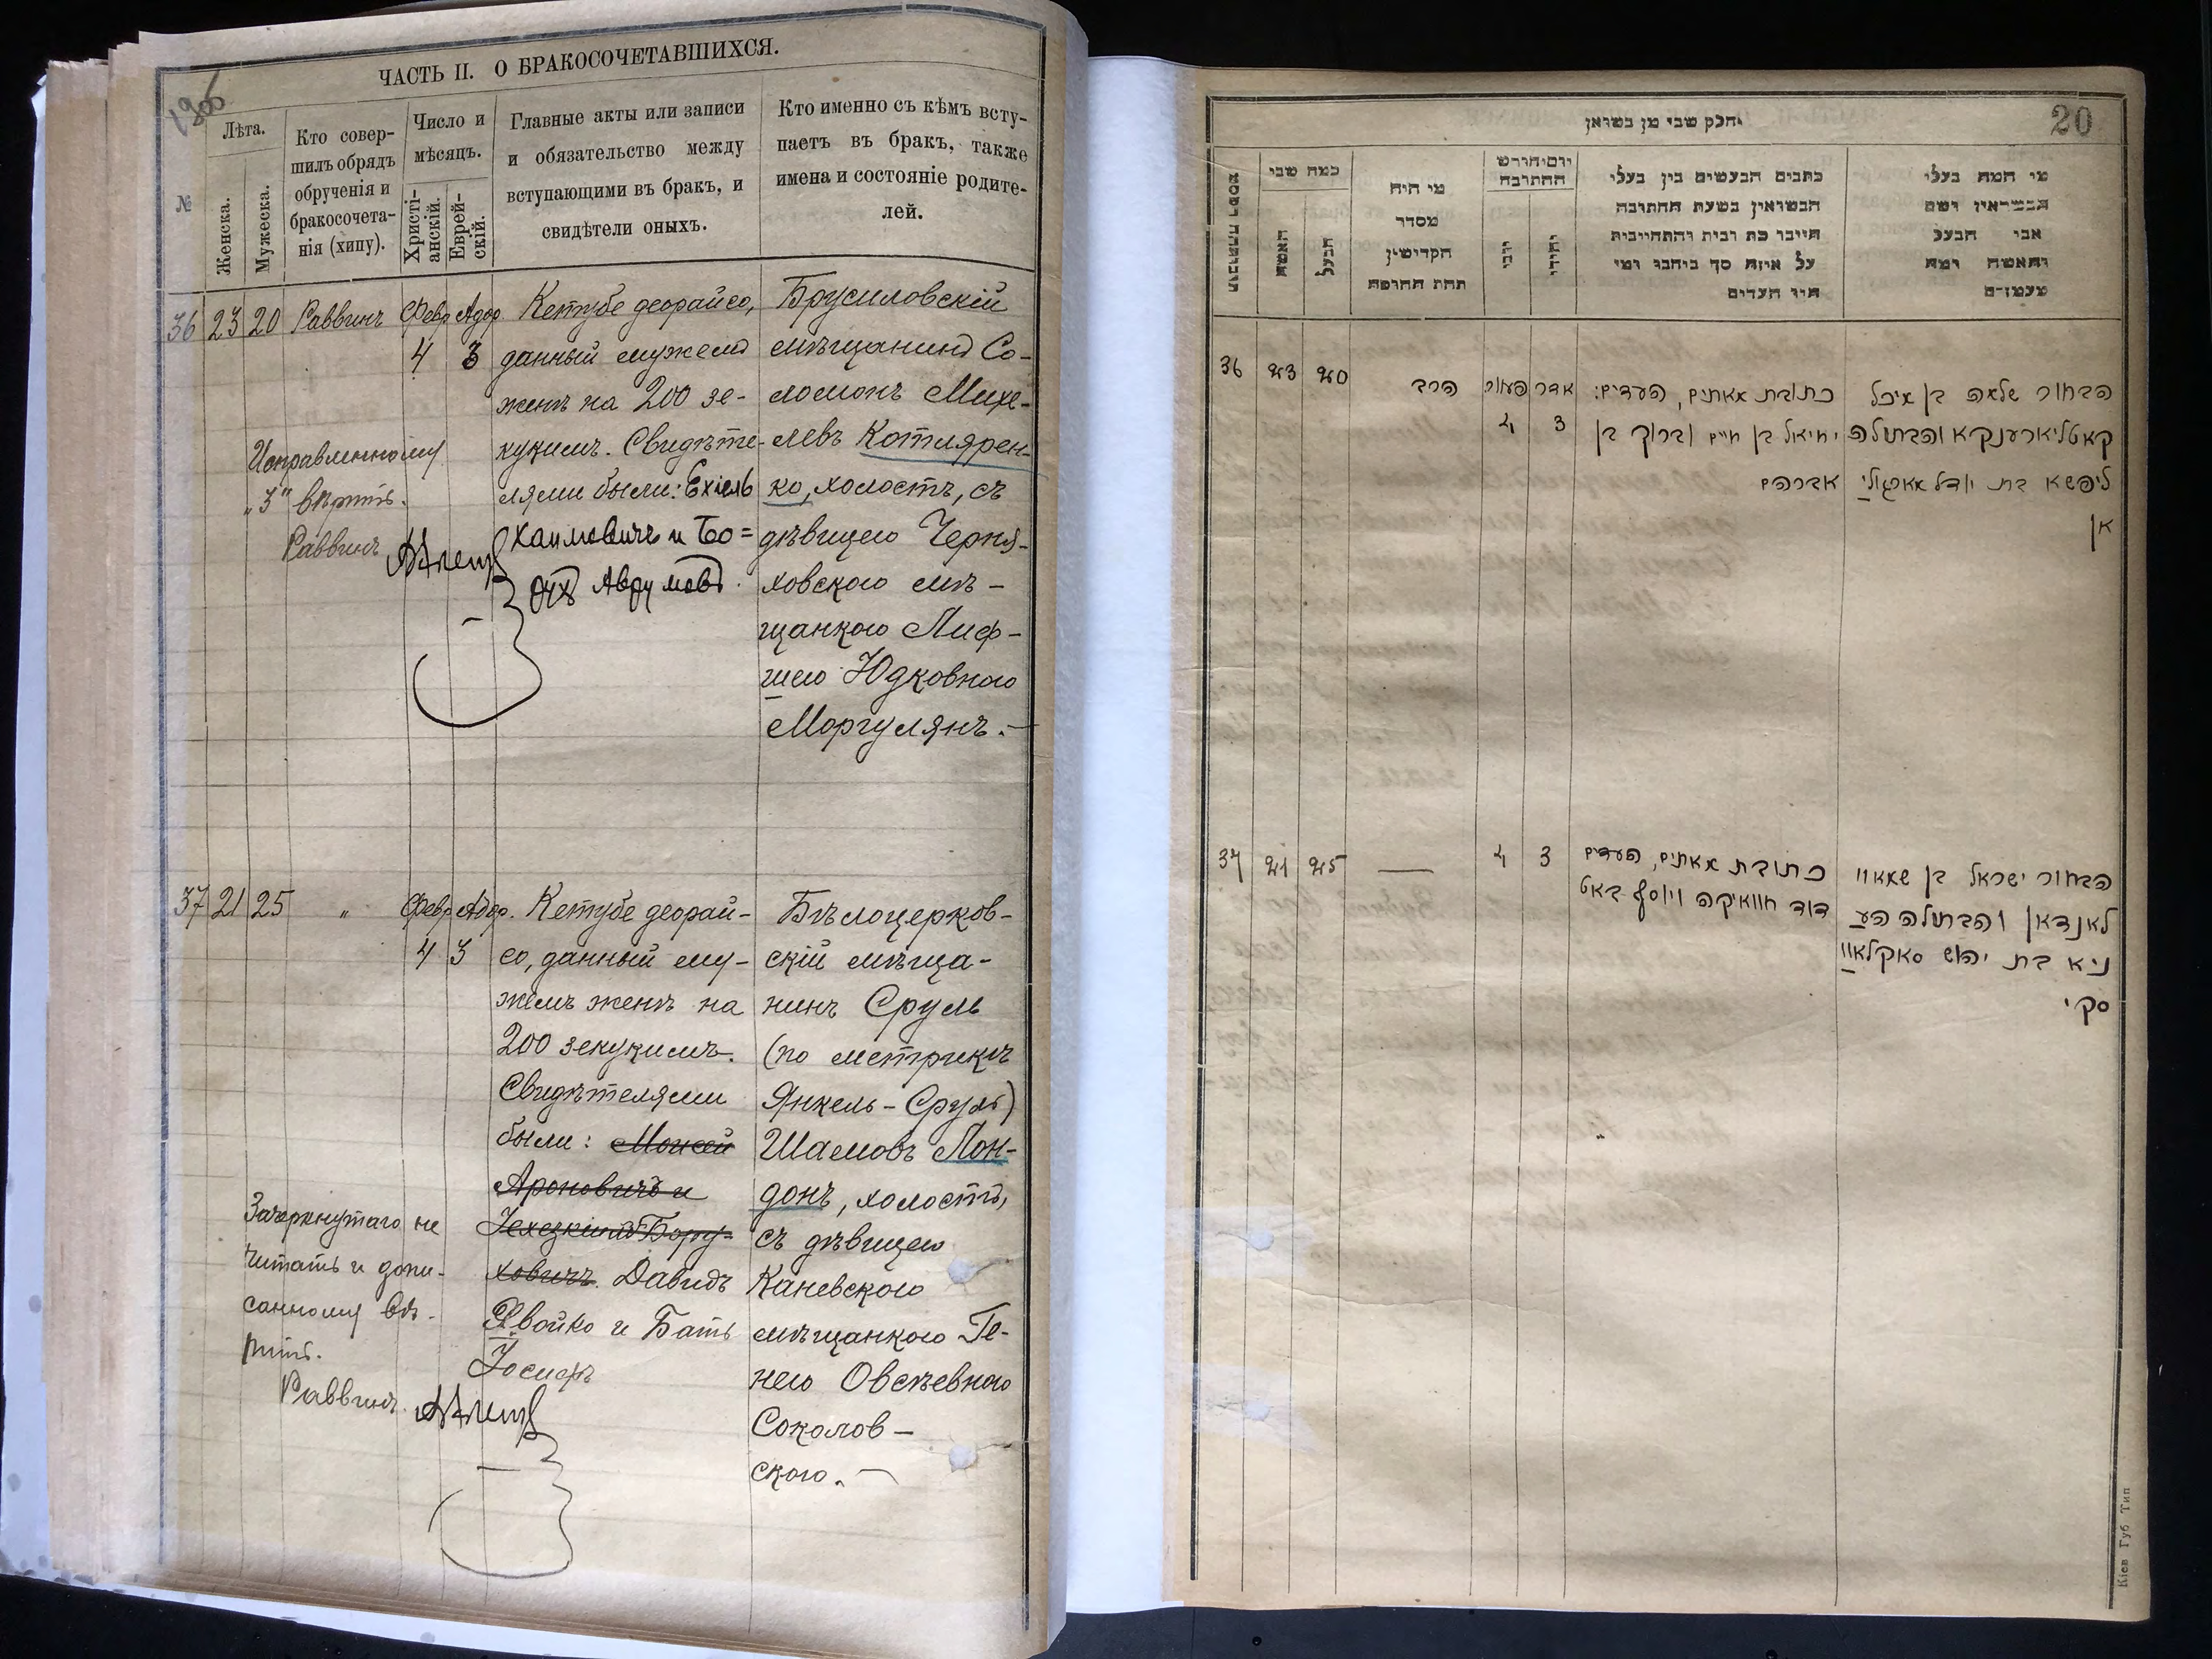 1906
ЧАСТЬ II. О БРАКОСОЧЕТАВШИХСЯ.
№
Лѣта.
Женска.
Мужеска.
Кто совер-
шилъ обрядъ
обрученія и
бракосочета-
нія (хипу).
Число и
мѣсяцъ.
Христі-
анскій.
Еврей-
скій.
Главные акты или записи
и обязательство между
вступающими въ бракъ, и
свидѣтели оныхъ.
Кто именно съ кѣмъ всту-
паетъ въ бракъ, также
имена и состояніе родите-
лей.
36 23 20 Раввинъ Февр Адор.
4 3
Кетубе деорайсо,
данный мужемъ
женѣ на 200 зе-
кукимъ. Свидѣте-
лями были: Ехіель
Хаимовичъ и Бо=
рухъ Аврумовъ.
Брусиловскій
мѣщанинъ Со-
ломонъ Михе-
левъ Котлярен-
ко, холостъ, съ
дѣвицею Черня-
ховскою мѣ-
щанкою Лиф-
шею Юдковною
Моргулянъ.—
Исправленному
„3" вѣрить.
Раввинъ
37 21 25 " Февр Адор.
4 3
Кетубе деорай-
со, данный му-
жемъ женѣ на
200 зекукимъ.
Свидѣтелями
были: Моисей
Ароновичъ и
Іехезкіилъ Бору-
ховичъ. Давидъ
Хвойко и Бать
Іосифъ
Бѣлоцерков-
скій мѣща-
нинъ Сруль
(по метрикѣ
Янкель-Сруль)
Шамовъ Лон-
донъ, холостъ,
съ дѣвицею
Каневскою
мѣщанкою Ге-
нею Овсѣевною
Соколов-
скою.—
Зачеркнутаго не
читать и допи-
санному вѣ-
рить.
Раввинъ.
20
חלק שני מן נשואן
כמה שני
האשה
הבעל
מי היה
מסדר
הקדישין
תחת החופה
יום וחודש
החתונה
יוני
יהודי
כתבים הנעשים בין בעלי
הנשואין בשעת החתונה
היינו כת ובית והתחייבות
על איזה סך ביחבו ומי
היו העדים
מי המה בעלי
הנשואין ושם
אבי הבעל
והאשה ומה
מעמדם
36 23 20 הרב פעוור אדר
4 3
כתובת מאתים, העדים:
יחיאל בן חיים וברוך בן
אברהם
הבחור שלמה בן מיכל
קאטליארענקא והבתולה
ליפשא בת יודל מארגולי
אן
37 21 25 — 4 3
כתובת מאתים, העדים
דוד חוואיקה ויוסף באט
הבחור ישראל בן שמאוו
לאנדאן והבתולה הע
ניא בת יהוש סאקלאוו
סקי
Кіев Губ Тип